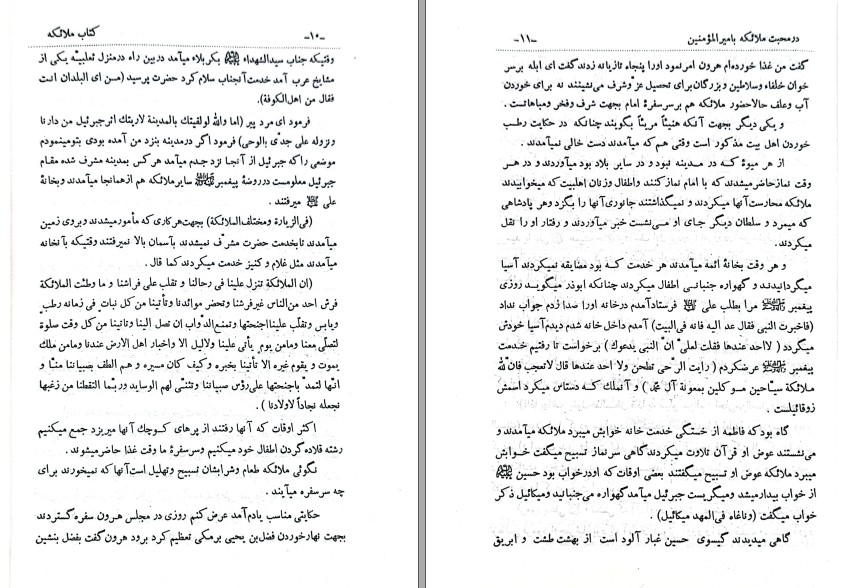 -۱۰- کتاب ملائکه
وقتیکه جناب سیدالشهداء ﷺ بکربلاء میآمد دربین راه درمنزل ثعلبیّه یکی از
مشایخ عرب آمد خدمت آنجناب سلام کرد حضرت پرسید (من ای البلدان انت
فقال من اهل الکوفة).
فرمود ای مرد پیر (اما والله لولقیتك بالمدینة لاریتك اثر جبرئیل من دارنا
ونزوله علی جدّی بالوحی) فرمود اگر درمدینه بنزد من آمده بودی بتومینمودم
موضعی راکه جبرئیل از آنجا نزد جدم میآمد هرکس بمدینه مشرف شده مقام
جبرئیل معلومست درروضهٔ پیغمبر ﷺ سایرملائکه هم ازهمانجا میآمدند وبخانهٔ
علی میرفتند .
(فی الزیارة ومختلف الملائکة) بجهت هرکاری که مأمورمیشدند وبروی زمین
میآمدند تابخدمت حضرت مشرّف نمیشدند بآسمان بالا نمیرفتند وقتیکه بآنخانه
میآمدند مثل غلام و کنیز خدمت میکردند کما قال .
(ان الملائکة تنزل علینا فی رحالنا و تقلب علی فراشنا و ما وطئت الملائکة
فرش احد من الناس غیرفرشنا وتحضر موائدنا وتأتینا من کل نبات فی زمانه رطب
ویابس وتقلّب علینا اجنحتها وتمنع الدّواب ان تصل الینا وتاتینا من کل وقت صلوة
لتصلّی معنا ومامن یوم یأتی علینا ولالیل الا واخبار اهل الارض عندنا ومامن ملك
یموت و یقوم غیره الا تأتینا بخبره وکیف کان مسیره و هم الطف بصبیاننا منّا و
انّها لتمدّ باجنحتها علی رؤس صبیاننا وتثنّی لهم الوساید وربّما التقطنا من زغبها
نجعله نجاداً لاولادنا ) .
اکثر اوقات که آنها رفتند از پرهای کوچك آنها میریزد جمع میکنیم
رشته قلاده گردن اطفال خود میکنیم وسرسفرهٔ ما وقت غذا حاضرمیشوند .
نگوئی ملائکه طعام وشرابشان تسبیح وتهلیل است آنها که نمیخورند برای
چه سرسفره میآیند .
حکایتی مناسب یادم آمد عرض کنم روزی در مجلس هرون سفره گستردند
بجهت نهارخوردن فضل بن یحیی برمکی تعظیم کرد برود هرون گفت بفضل بنشین
در محبت ملائکه بامیرالمؤمنین -۱۱-
گفت من غذا خورده‌ام هرون امر نمود اورا پنجاه تازیانه زدند گفت ای ابله برسر
خوان خلفاء وسلاطین و بزرگان برای تحصیل عزّ وشرف می‌نشینند نه برای خوردن
آب وعلف حالا حضور ملائکه هم برسرسفرهٔ امام بجهت شرف وفخر ومباهاتست .
و یکی دیگر بجهت آنکه هنیئاً مریئاً بگویند چنانکه در حکایت رطب
خوردن اهل بیت مذکور است وقتی هم که میآمدند دست خالی نمیآمدند .
از هر میوهٔ کـه در مـدینه نبود و در سایر بلاد بود میآوردند و در هـر
وقت نماز حاضر میشدند که با امام نماز کنند واطفال و زنان اهلبیت که میخوابیدند
ملائکه محارست آنها میکردند و نمیگذاشتند جانوری آنها را بگزد وهر پادشاهی
که میمرد و سلطان دیگر جای او می‌نشست خبر میآوردند و رفتار او را نقل
میکردند.
و هر وقت بخانهٔ ائمه میآمدند هر خدمت کـه بود مضایقه نمیکردند آسیا
میگردانیدند و گهواره جنبانی اطفال میکردند چنانکه ابوذر میگویـد روزی
پیغمبر ﷺ مرا بطلب علی فرستاد آمدم درخانه اورا صدا زدم جواب نداد
(فاخبرت النبی فقال عد الیه فانه فی البیت) آمدم داخل خانه شدم دیدم آسیا خودش
میگردد ( لااحد عندها فقلت لعلی انّ النبی یدعوك ) برخواست تا رفتیم خدمت
پیغمبر ﷺ عرضکردم ( رایت الرّحی تطحن ولا احد عندها قال لاتعجب فانّ لله
مـلائکة سیّاحین مـوکلین بمعونة آل محمد ) و آنملك کـه دستاس میکرد اسمش
زوقائیلست .
گاه بود که فاطمه از خستگی خدمت خانه خوابش میبرد ملائکه میآمدند و
می‌نشستند عوض او قرآن تلاوت میکردند گاهی سرنماز تسبیح میگفت خـوابش
میبرد ملائکه عوض او تسبیح میگفتند بعضی اوقات که او در خواب بود حسین
از خواب بیدار میشد ومیگریست جبرئیل میآمد گهواره می‌جنبانید ومیکائیل ذکر
خواب میگفت (وناغاه فی المهد میکائیل) .
گاهی میدیدند گیسوی حسین غبار آلود است از بهشت طشت و ابریق